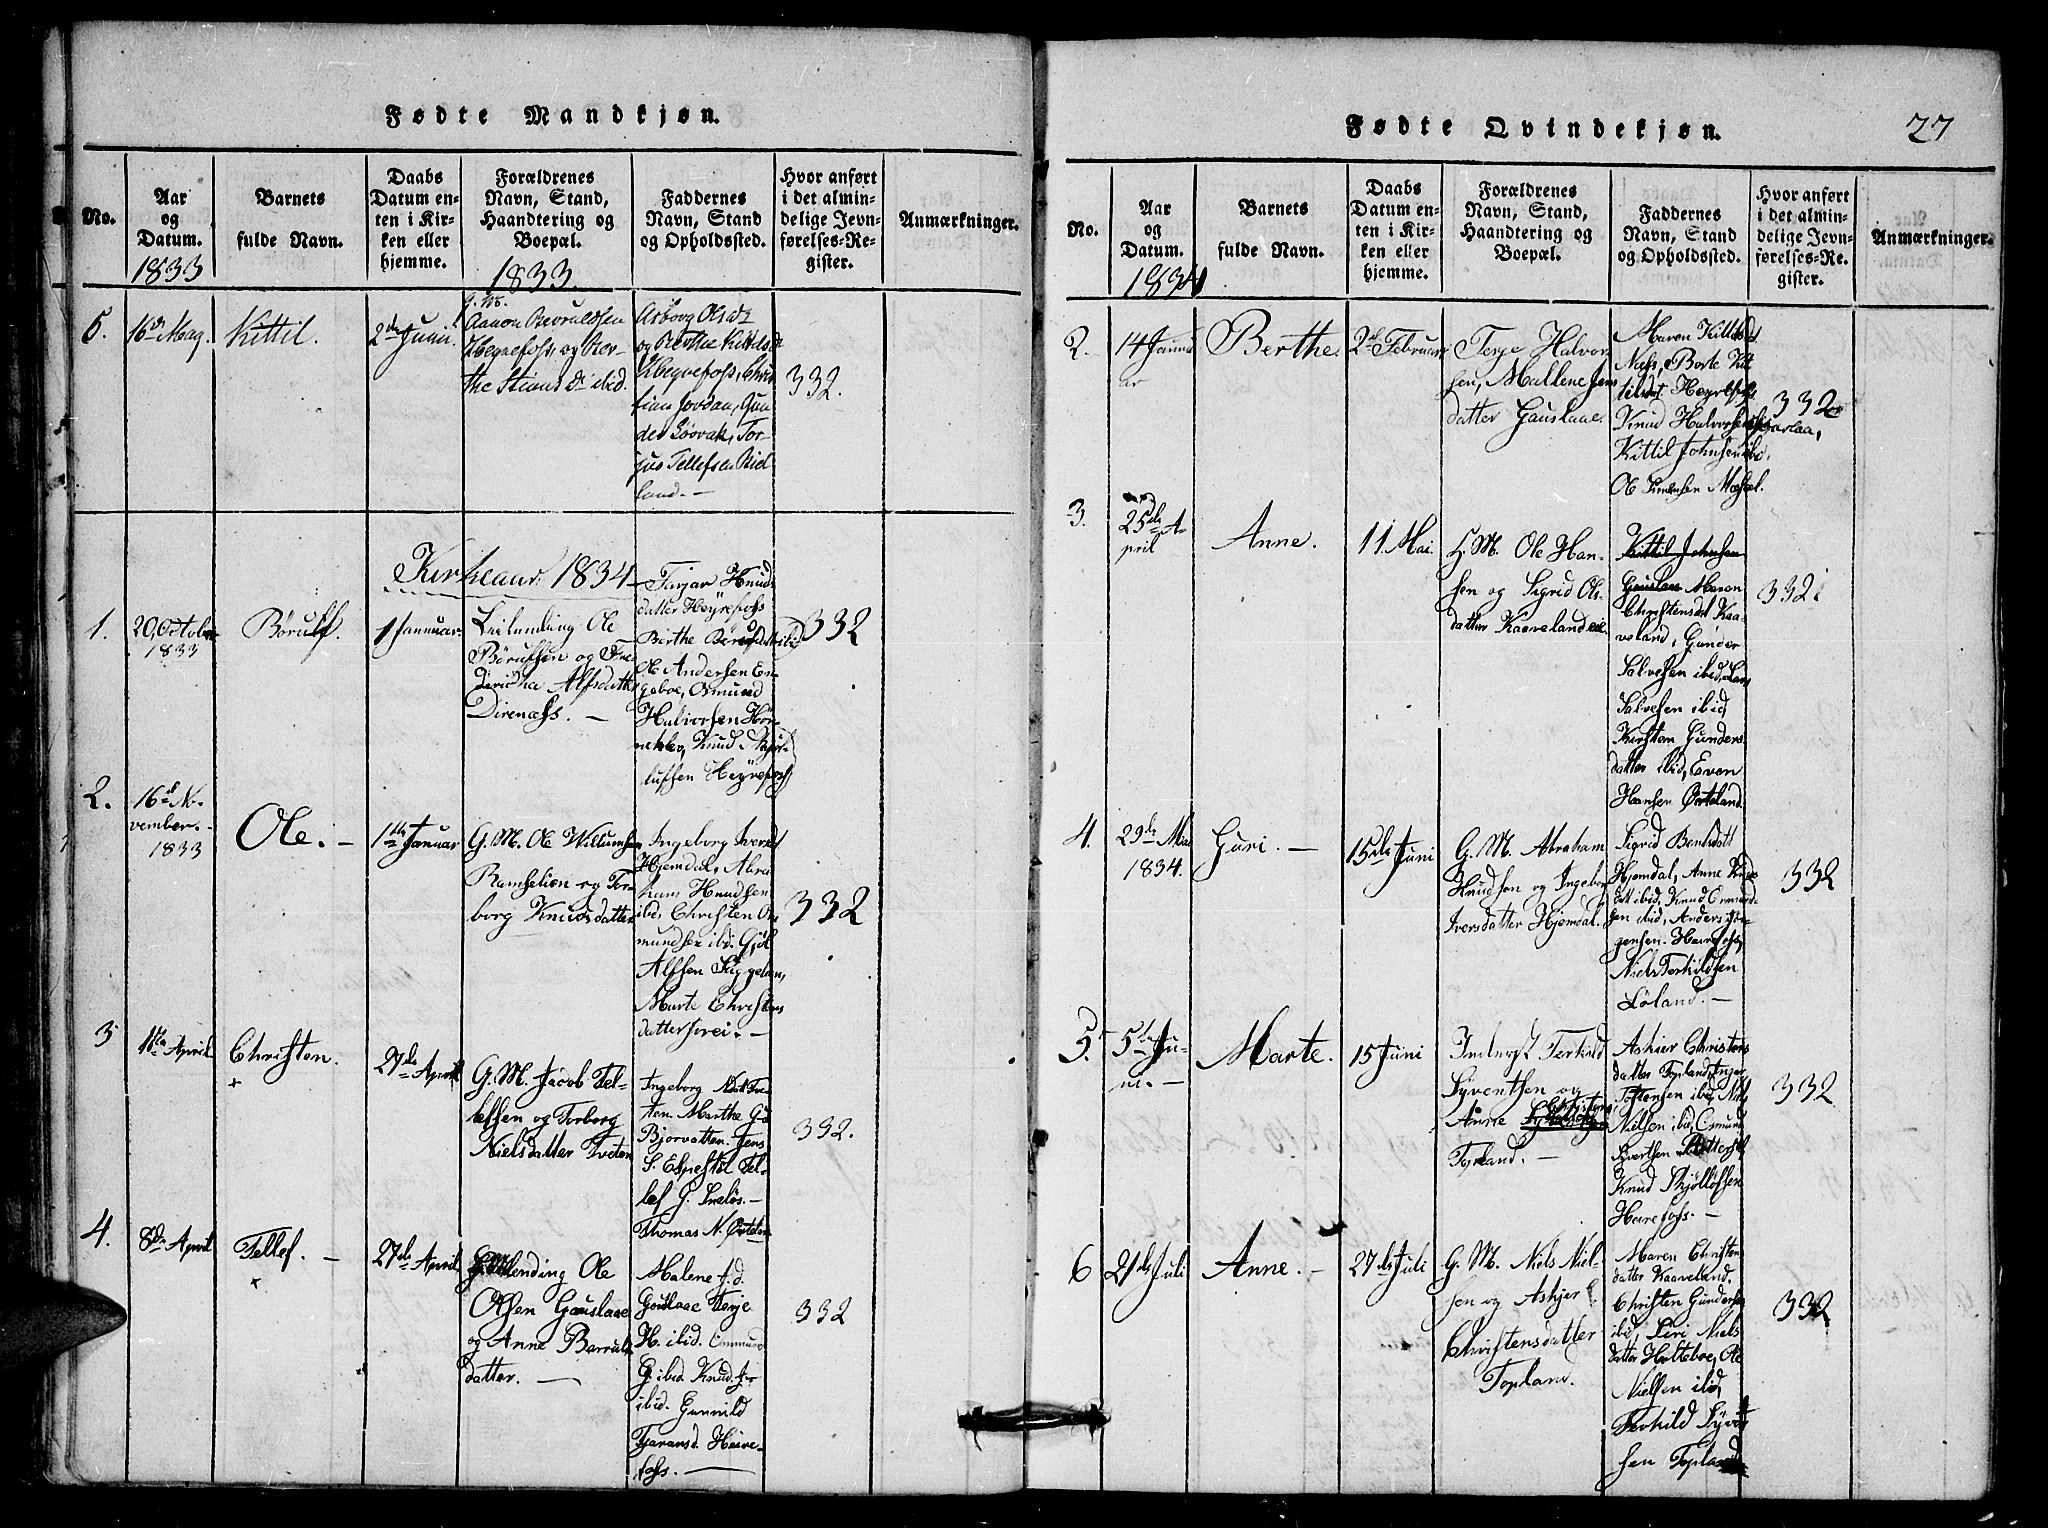 Fødte Mandkjøn.
No.
Aar
og
Datum.
1833
Barnets
fulde Navn.
Daabs
Datum en-
ten i Kir-
ken eller
hjemme.
Forældrenes
Navn, Stand,
Haandtering og
Boepæl.
1833.
Faddernes
Navn, Stand
og Opholdssted.
Hvor anført
i det almin-
delige Jevn-
førelses-Re-
gister.
Anmærkninger.
5.
16de May.
Kittil.
2den Junii.
Aanon Beruldsen
Heyrefoss, og Ber-
the Stians Dr ibid.
Asborg Olsdr
og Berthe Kittilsdr
Heyrefoss, Chris-
tian Jordan, Gun-
der Løovak, Tor-
jus Tellefsen Rid-
land. —
332.
Kirkeaar 1834
1.
20 October
1833
Børulf.
1 Januar.
Leilending Ole
Børulfsen og Fre-
dericha Alfsdatter
Direnæss. —
Tarjar Knuds
datter Heyrefoss
Berthe Børulfsdatter ibid
Ole Andersen En-
geboe, Osmund
Halvorsen Hør-
nekløv, Knud
lufsen Heyrefoss
332
2.
16de No-
vember.
1833
Ole. —
1ste Januar
G. M. Ole Willumsen
Ramselien og Tor-
borg Knudsdatter
Ingeborg Iversd
Hjemdal, Abra
ham Knudsen
ibid, Christen Os
mundsen ibid. Gjül
Alfsen Süggelan,
Marte Christens
datter Frei. —
332
3
11te April
Christen.
+
27de April
G. M. Jacob Tel-
lefsen og Torborg
Nielsdatter Tveten
Ingeborg Nielsd Tve-
ten. Marthe G.d
Bjorvatten. Jens
S. Espestøl Tel-
lef G. Sneløs. —
Thomas N. Østeland
332.
4.
8de April
Tellef. —
+
27de April
Leilending Ole
Olsen Gauslaae
og Anne Barruls
datter. —
Malene J.d.
Gauslaae Terje
H. ibid. Ommun
G. ibid. Knud. H
ibid. Gunnild
Tjaransd. Heire-
foss. —
332
Fødte Qvindekjøn.
27
No.
Aar
og
Datum.
1834
Barnets
fulde Navn.
Daabs
Datum en-
ten i Kir-
ken eller
hjemme.
Forældrenes
Navn, Stand,
Haandtering og
Boepæl.
Faddernes
Navn, Stand
og Opholdssted.
Hvor anført
i det almin-
delige Jevn-
førelses-Re-
gister.
Anmærkninger.
2.
14 Janu
ar
Berthe.
2de Februar
Terje Halvor
sen, Mallene Jens
datter Gauslaae.
Maren Kittelsdt
Næss, Berte Kit
tilsdt. Heyrefoss
Knud Halvorsen Gauslaa,
Kittil Johnsen ibi,
Ole Knudsen Mæsel.
332
3.
25de A-
pril
Anne.
11 Mai.
G. M. Ole Han-
sen og Sigrid Ols
datter Kaaveland
Kittil Johnsen
Gauslaae Maren
Christensdat Kaa
veland, Gunder
Salvesen ibid, Lars
Salvesen ibid,
Kirsten Gunders
datter ibid, Even
Hansen Østeland.
332
4.
29de Mai
1834.
Guri. —
15de Juni
G. M. Abraham
Knudsen og Ingebor
Iversdatter Hjemdal.
Sigrid Bentsdatt
Hjemdal, Anne Knus
dat ibid, Knud Osmund
sen ibid, Anders Jør-
gensen. Heirefoss,
Niels Terkildsen
Løland. —
332
5.
5te Ju-
ni. —
Marte.
15 Juni
Inderst Terkild
Syventsen og
Anne
Topland. —
Askier Christens
datter Topland, Inger
Tostensen ibid, Niels
Nielsen ibid, Osmund
Syvertsen
Knud Thjølløfsen
Heirefoss. —
332
6
21de Juli
Anne. —
27de Juli
G. M. Niels Niel-
sen og Askjer
Christensdatter
Topland.
Maren Christens
datter Kaaveland.
Christen Gundersen
ibid, Siri Niels
datter Holteboe, Ole
Nielsen ibid,
Terkild Syvert
sen Topland
332